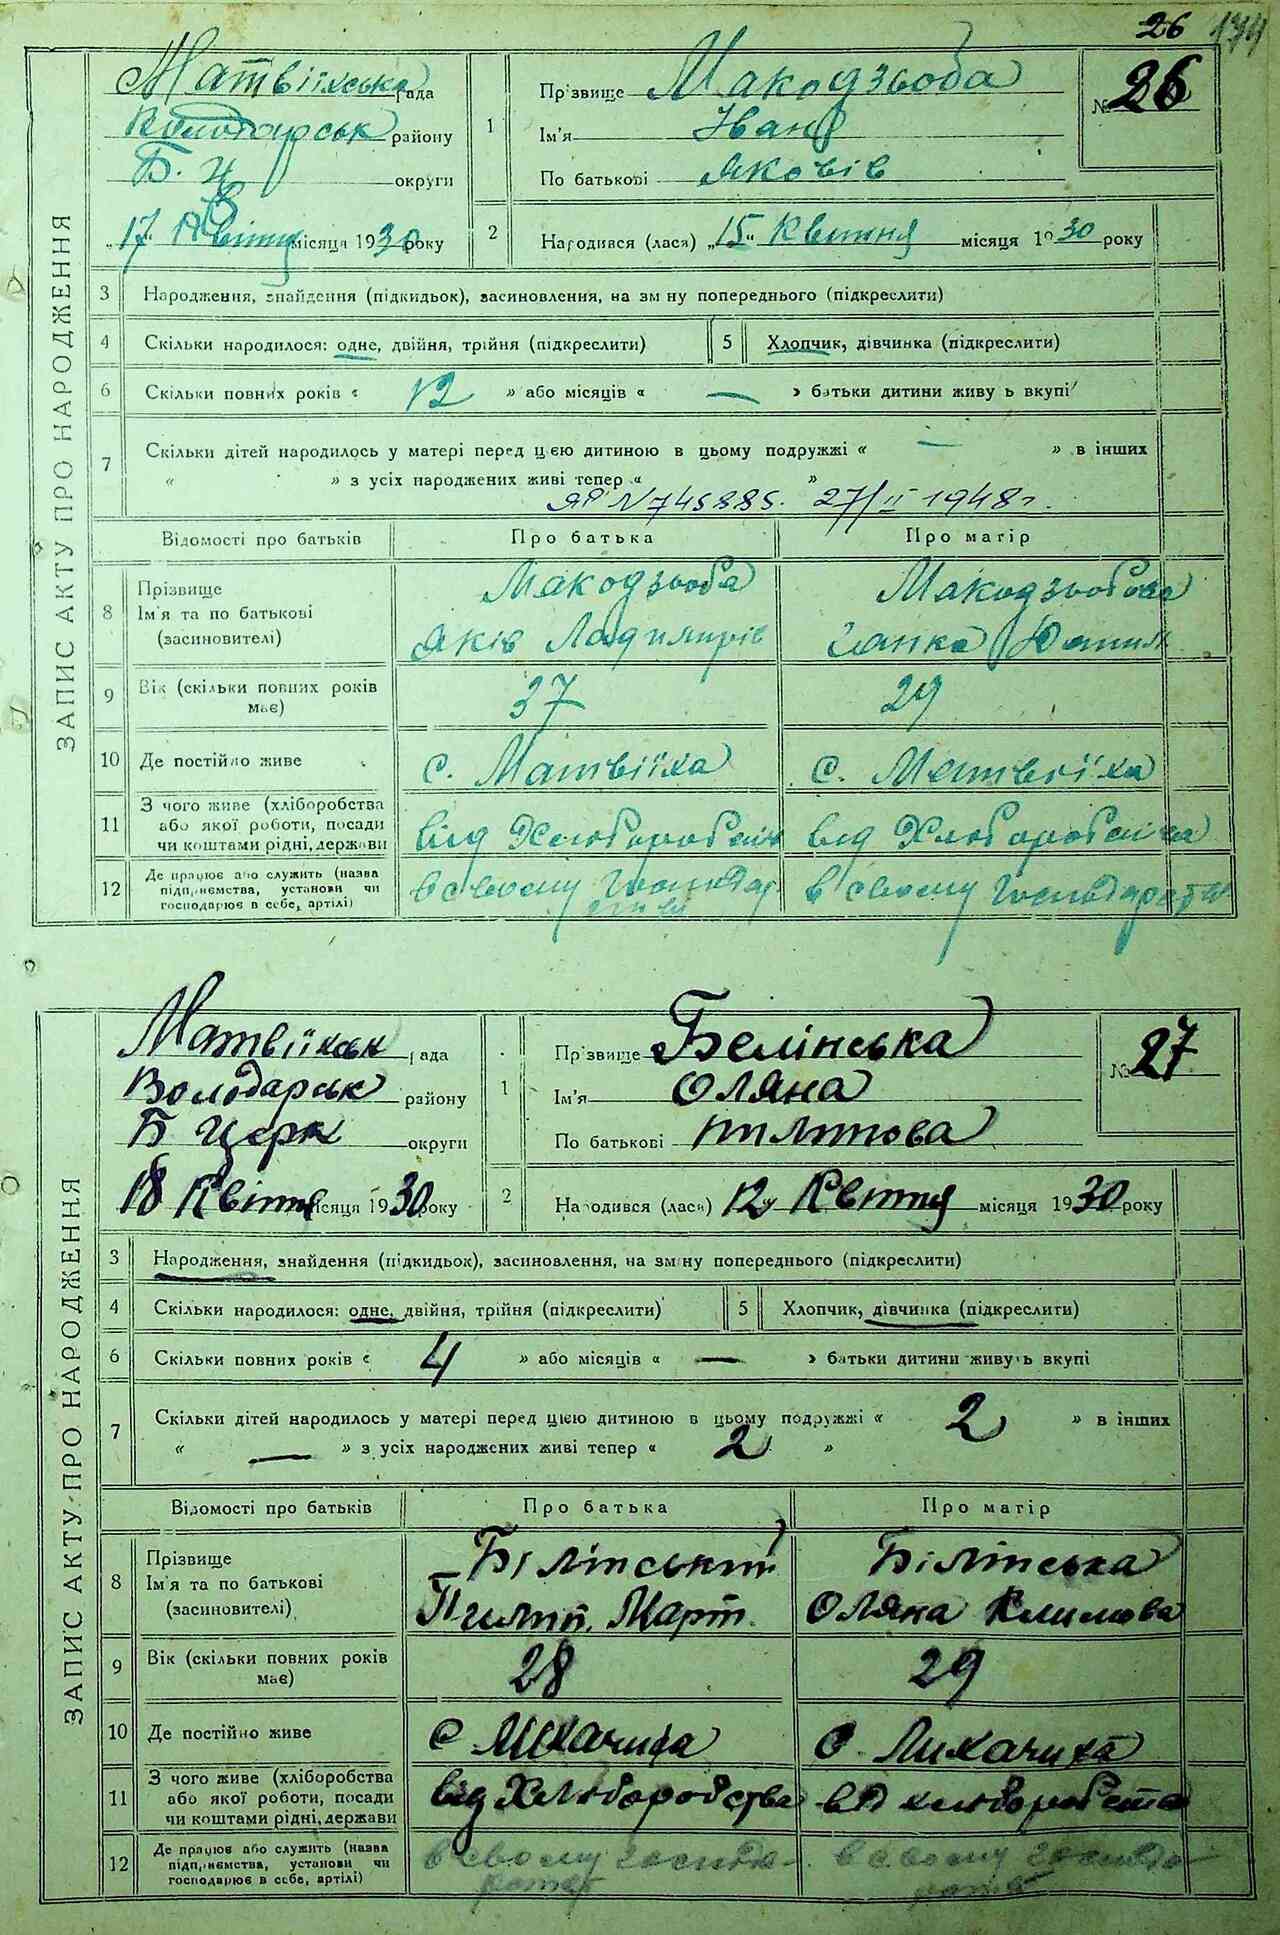 26
Матвіїхська рада
Володарськ району
Б. Ц округи
„17“ Квітня місяця 1930 року
1
Прізвище Макодзьоба
Ім'я Іван
По батькові Яковів
№ 26
2
Народився (лася) „15“ Квітня місяця 1930 року
ЗАПИС АКТУ ПРО НАРОДЖЕННЯ
3 Народження, знайдення (підкидьок), засиновлення, на зміну попереднього (підкреслити)
4 Скільки народилося: одне, двійня, трійня (підкреслити) 5 Хлопчик, дівчинка (підкреслити)
6 Скільки повних років « 12 » або місяців « — » батьки дитини живуть вкупі
7 Скільки дітей народилось у матері перед цією дитиною в цьому подружжі « — » в інших
« » з усіх народжених живі тепер « »
ЯР N 745885. 27/II 1948 г.
Відомості про батьків Про батька Про матір
8 Прізвище Макодзьоба Макодзьобова
Ім'я та по батькові
(засиновителі) Яків Ладимирів Ганка
9 Вік (скільки повних років 37 29
має)
10 Де постійно живе с. Матвіїха с. Матвіїха
11 З чого живе (хліборобства
або якої роботи, посади від Хлюборобства від Хлюборобства
чи коштами рідні, держави
12 Де працює або служить (назва
підприємства, установи чи в своєму господар в своєму господарстві
господарює в себе, артілі) стві
Матвіїхськ рада
Володарськ району
Б Церк округи
18 Квітня місяця 1930 року
1
Прізвище Белінська
Ім'я Оляна
По батькові Пилипова
№ 27
2
Народився (лася) 12 Квітня місяця 1930 року
ЗАПИС АКТУ ПРО НАРОДЖЕННЯ
3 Народження, знайдення (підкидьок), засиновлення, на зміну попереднього (підкреслити)
4 Скільки народилося: одне, двійня, трійня (підкреслити) 5 Хлопчик, дівчинка (підкреслити)
6 Скільки повних років « 4 » або місяців « — » батьки дитини живуть вкупі
7 Скільки дітей народилось у матері перед цією дитиною в цьому подружжі « 2 » в інших
« — » з усіх народжених живі тепер « 2 »
Відомості про батьків Про батька Про матір
8 Прізвище Білінський Білінська
Ім'я та по батькові
(засиновителі) Пилип. Март. Оляна Климова
9 Вік (скільки повних років 28 29
має)
10 Де постійно живе с. Лихачиха с. Лихачиха
11 З чого живе (хліборобства
або якої роботи, посади від Хлюборобства від хлюборобства
чи коштами рідні, держави
12 Де працює або служить (назва
підприємства, установи чи в своєму господа- в своєму господа-
господарює в себе, артілі)